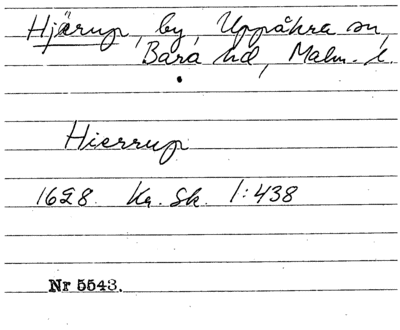 Hjärup, by, Uppåkra sn,
Bara hd, Malm. l.
Hierrup
1628. Kr. Sk. 1:438
Nr 5543.